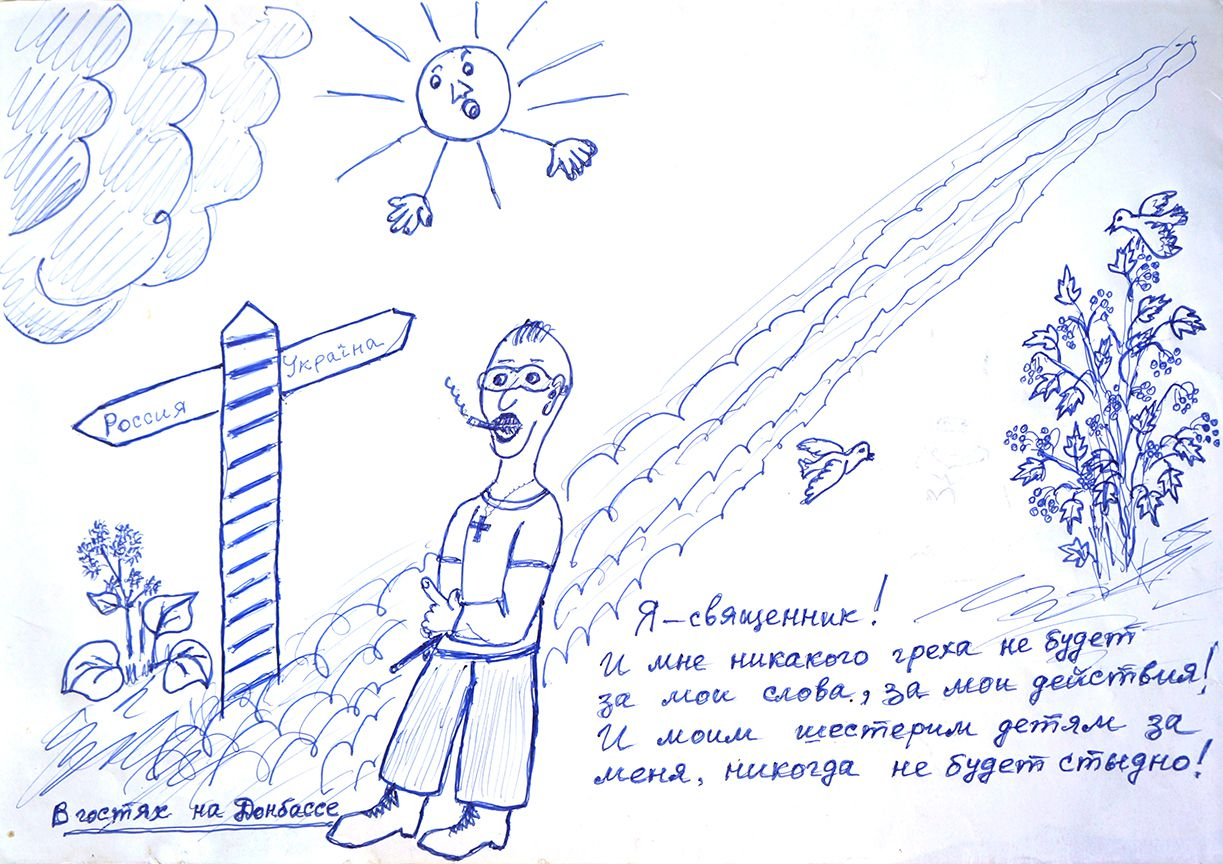 Україна
Россия
Я–священник!
И мне никакого греха не будет
за мои слова, за мои действия!
И моим шестерим детям за
меня, никогда не будет стыдно!
В гостях на Донбассе